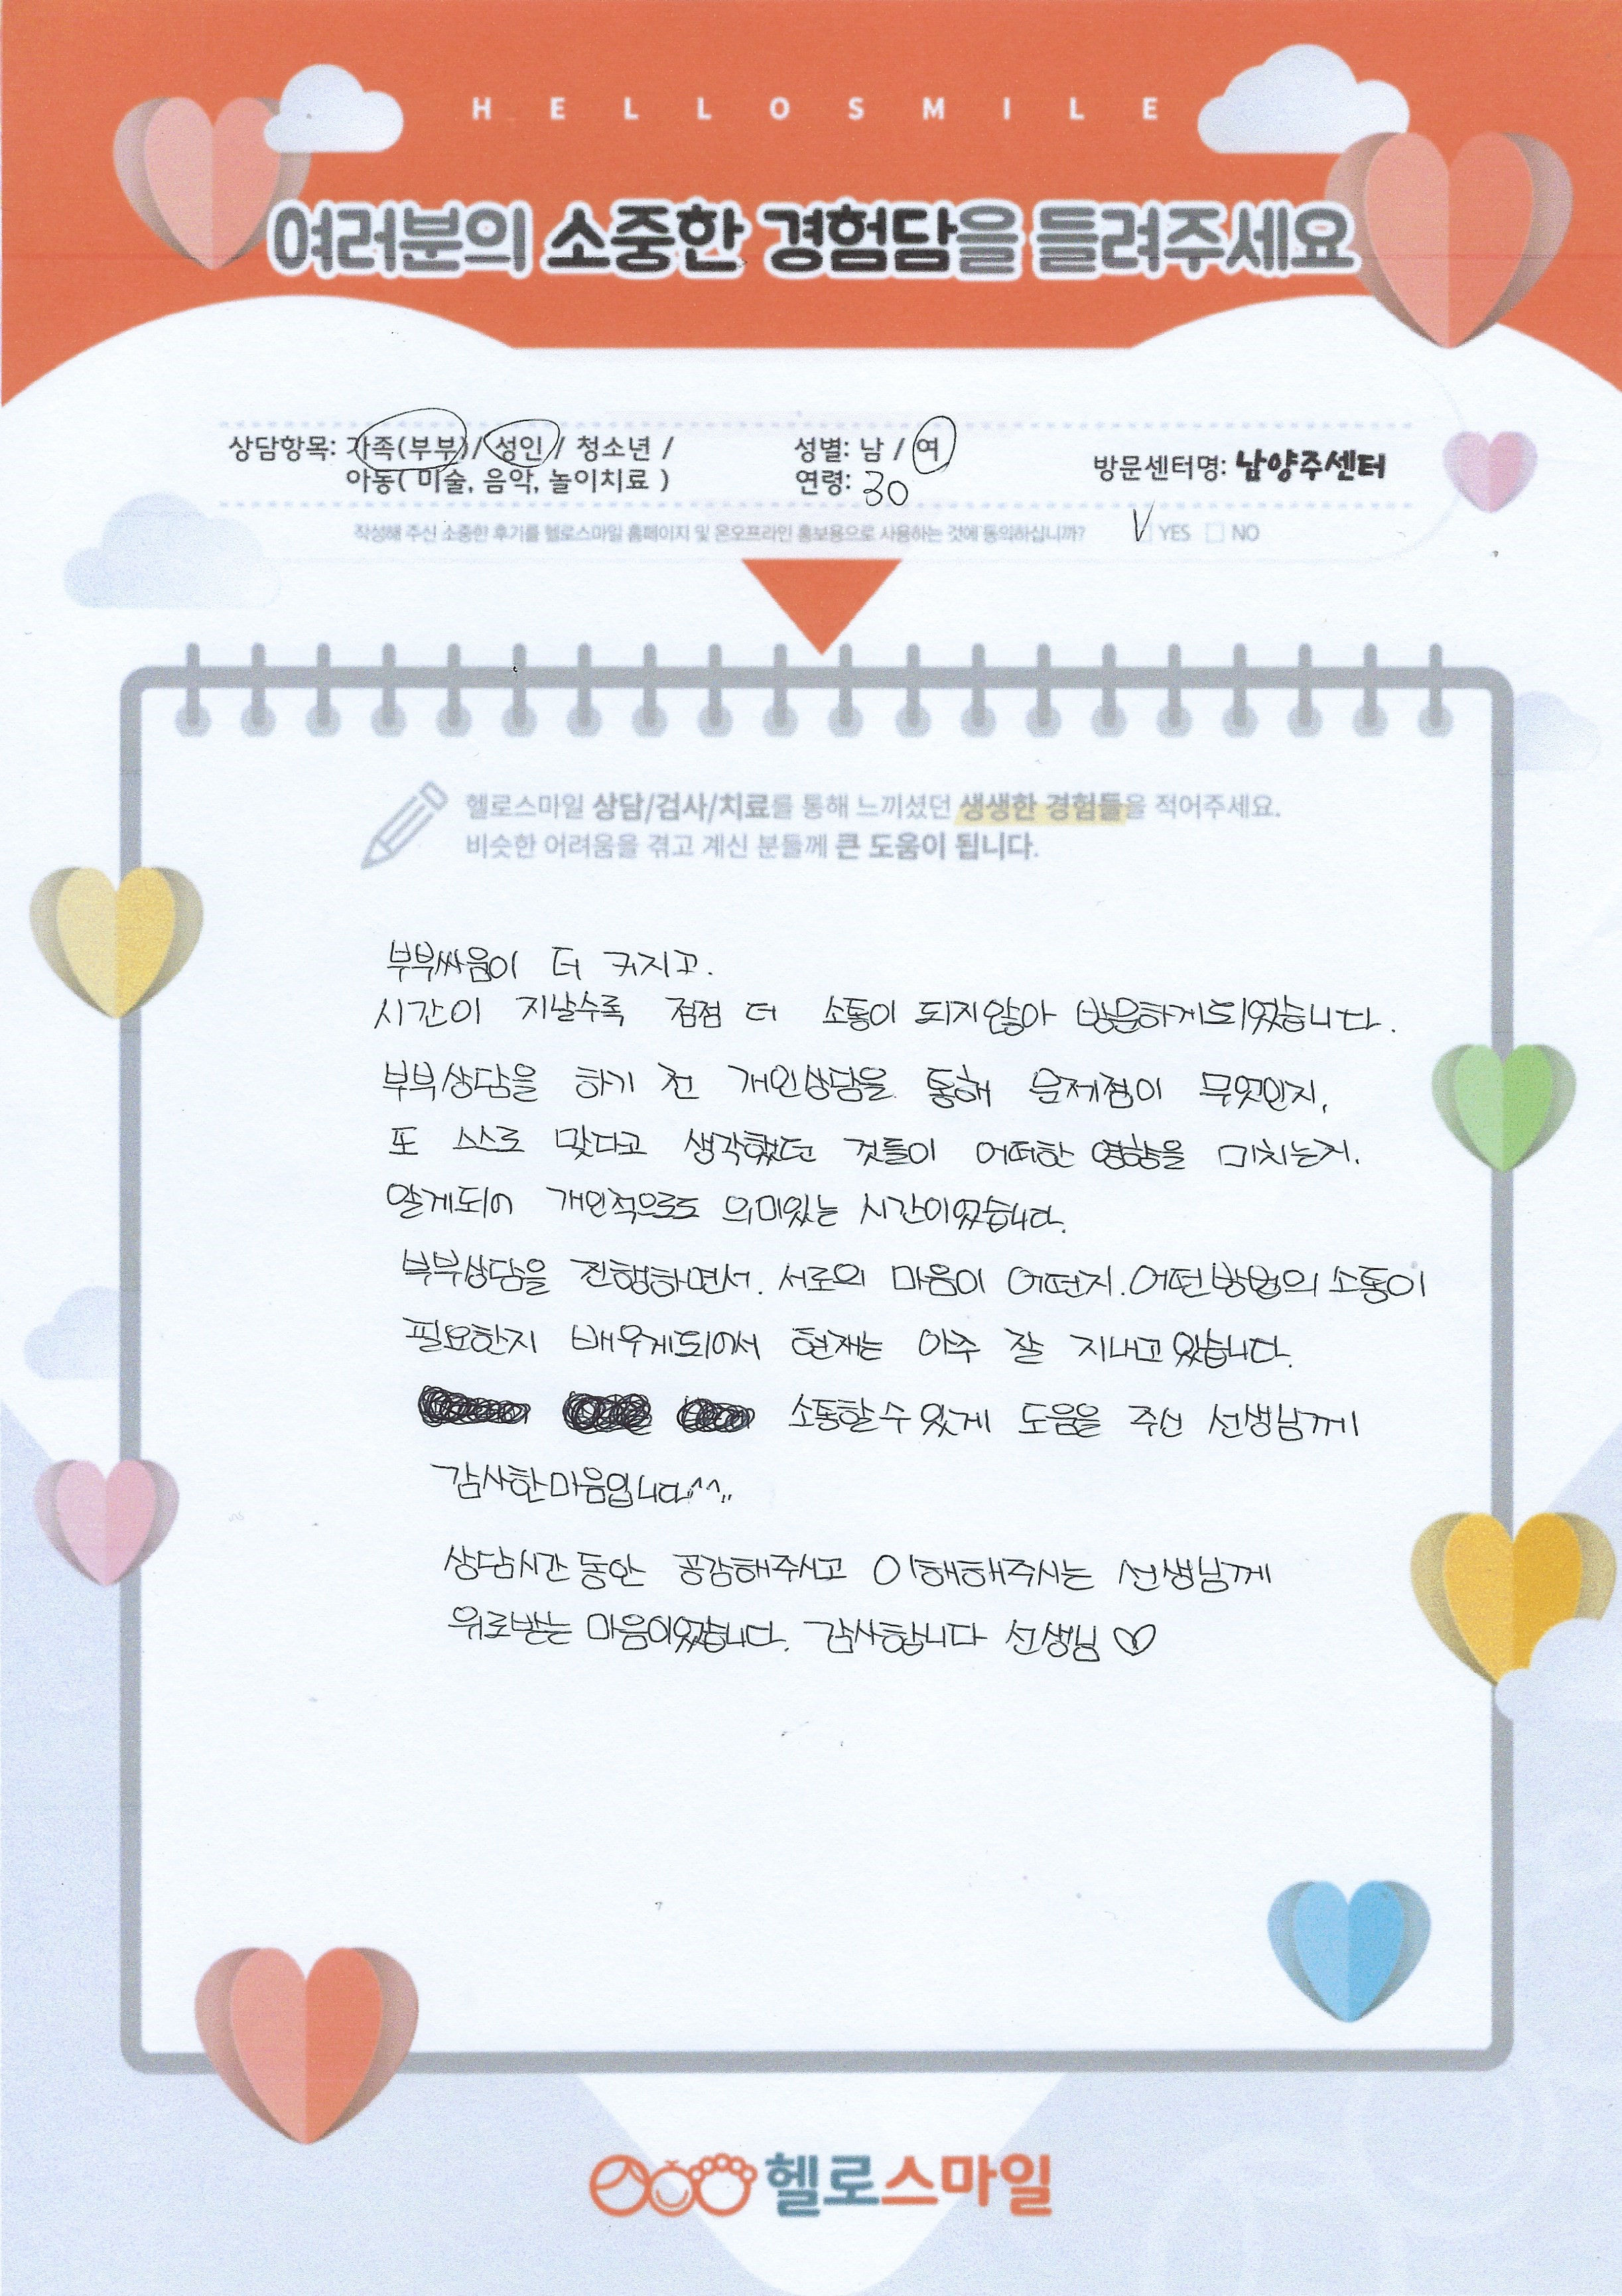 HELLOSMILE
여러분의 소중한 경험담을 들려주세요
상담항목: 가족(부부) / 성인 / 청소년 /
아동( 미술, 음악, 놀이치료 )
성별: 남 / 여
연령: 30
방문센터명: 남양주센터
작성해 주신 소중한 후기를 헬로스마일 홈페이지 및 온오프라인 홍보용으로 사용하는 것에 동의하십니까? V YES NO
헬로스마일 상담/검사/치료를 통해 느끼셨던 생생한 경험들을 적어주세요.
비슷한 어려움을 겪고 계신 분들께 큰 도움이 됩니다.
부부싸움이 더 커지고.
시간이 지날수록 점점 더 소통이 되지않아 방문하게되었습니다.
부부상담을 하기 전 개인상담을 통해 문제점이 무엇인지,
또 스스로 맞다고 생각했던 것들이 어떠한 영향을 미치는지.
알게되어 개인적으로도 의미있는 시간이었습니다.
부부상담을 진행하면서. 서로의 마음이 어떤지. 어떤방법의 소통이
필요한지 배우게되어서 현재는 아주 잘 지내고있습니다.
소통할수있게 도움을 주신 선생님께
감사한마음입니다^^..
상담시간동안 공감해주시고 이해해주시는 선생님께
위로받는 마음이었습니다. 감사합니다 선생님♡
헬로스마일